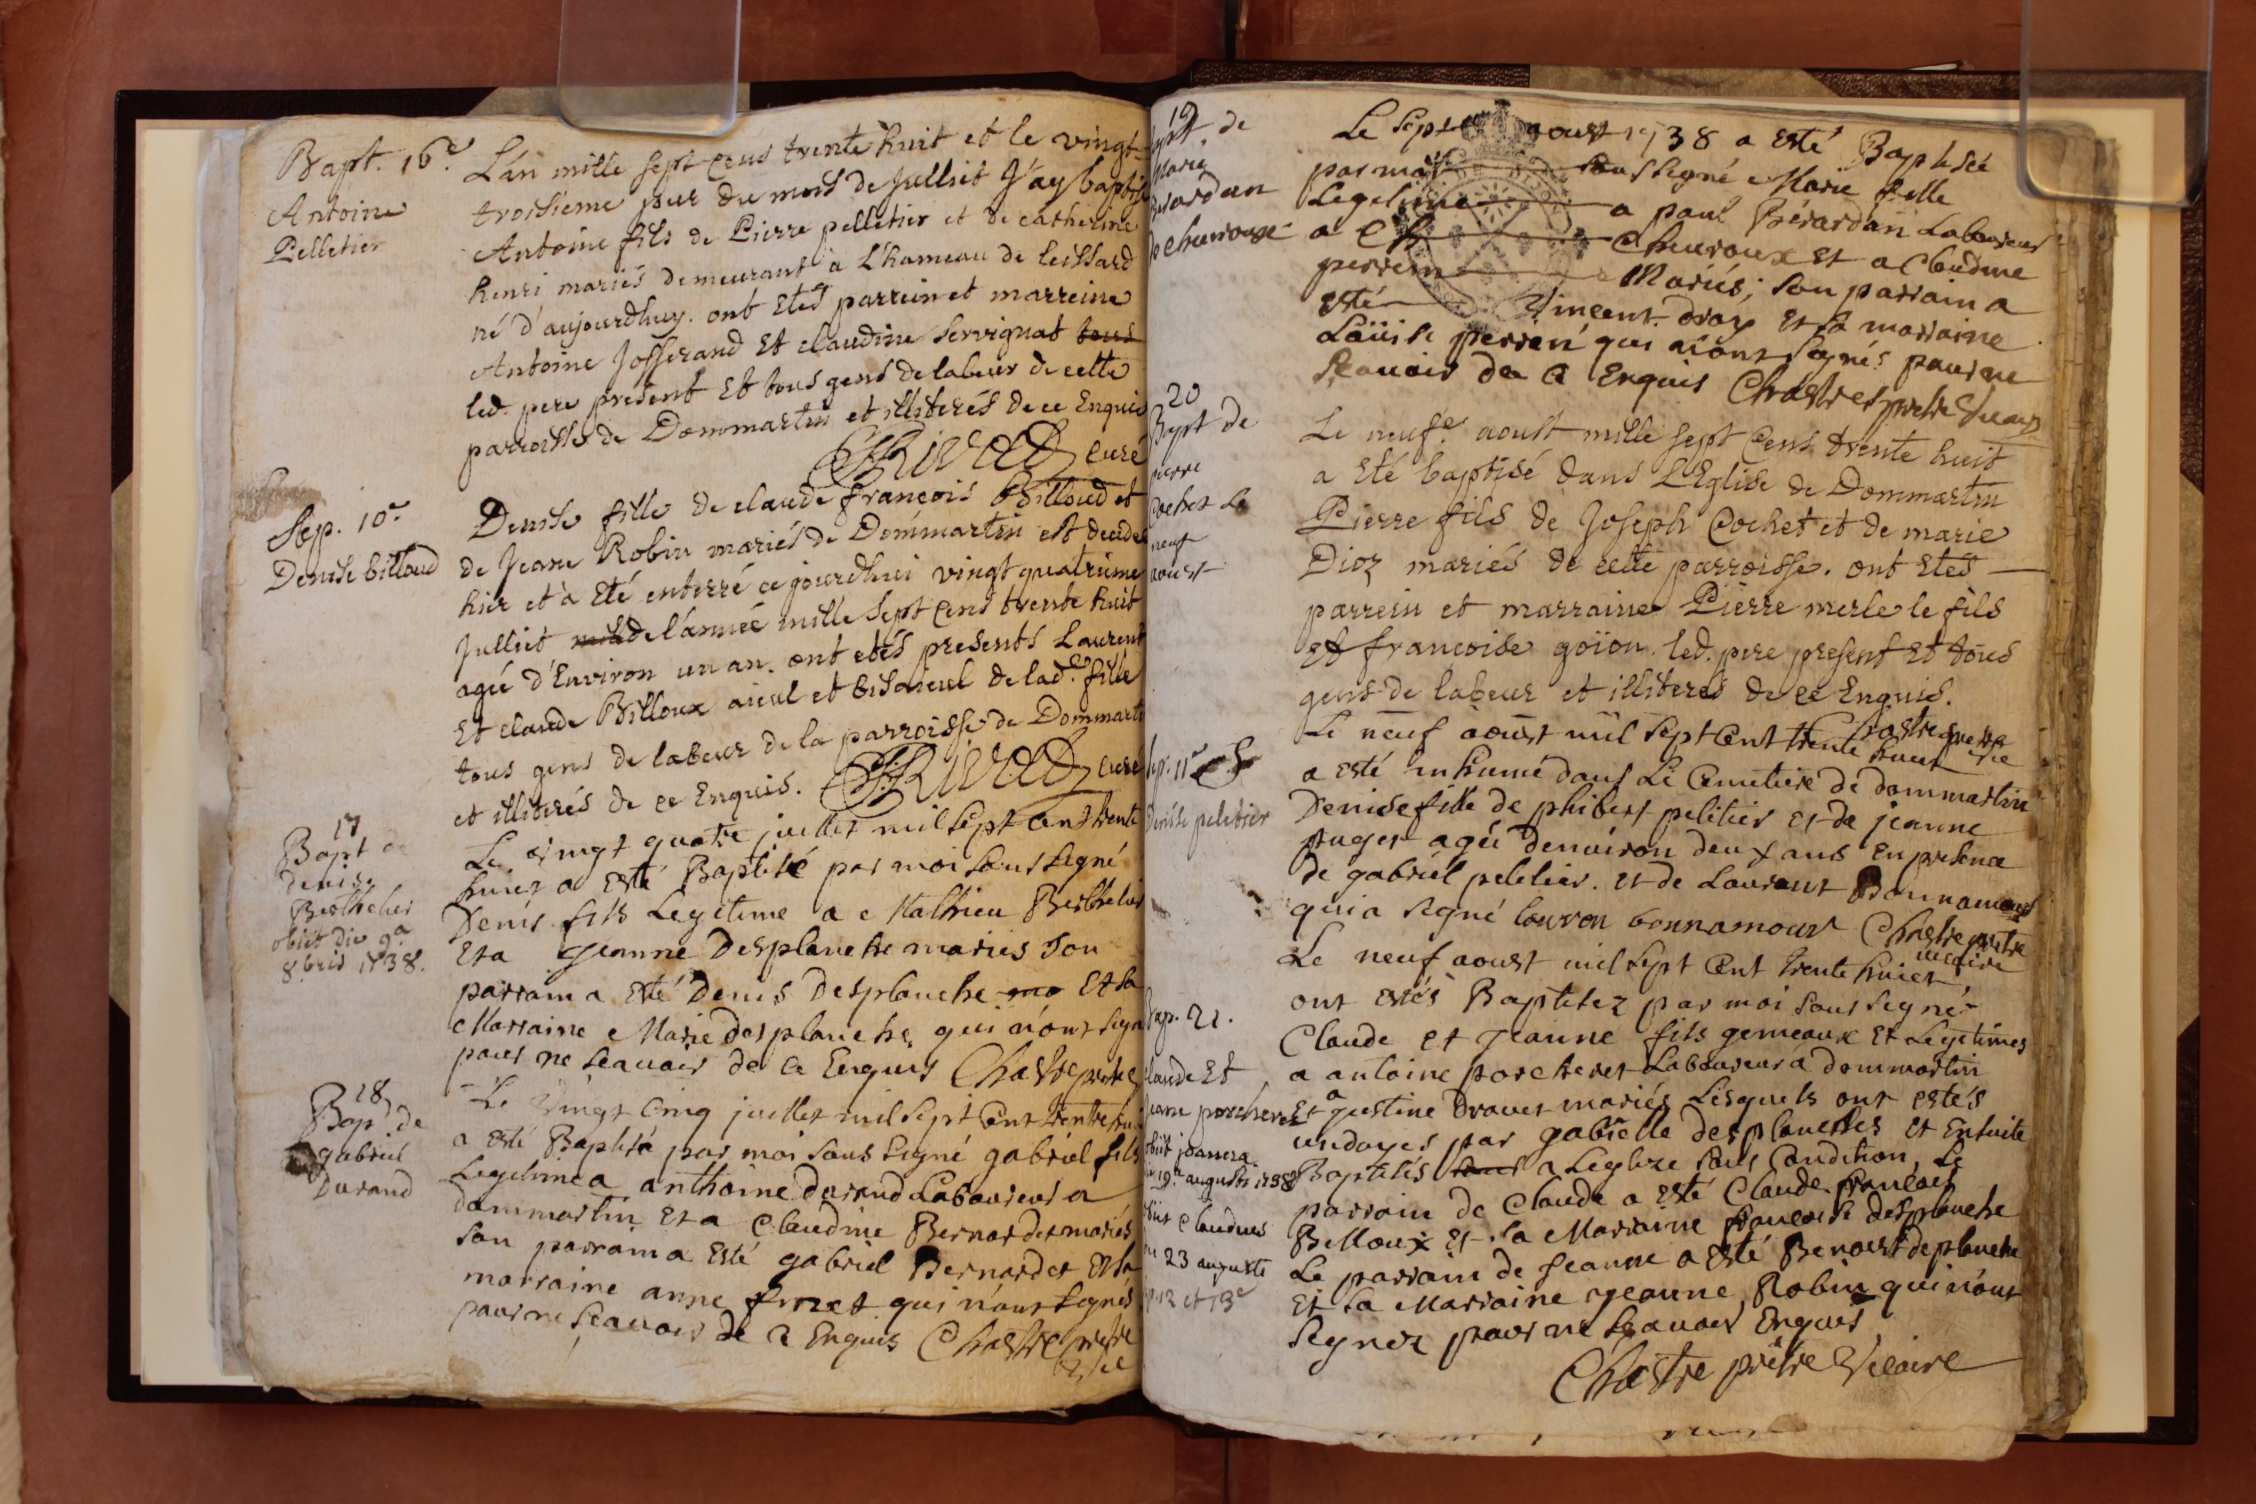 Bapt. 16e.
Antoine
Pelletier
L'an mille sept cens trente huit et le vingt
troisieme jour du mois de Julliet J'ay baptisé
Antoine fils de Pierre pelletier et de catherine
henri mariés demeurant à L'hameau de leissard
né d'aujourdhuy. ont Etés parrein et marreine
Antoine Josserand Et claudine servignat tous
led. pere present Et tous gens de labeur de cette
parroisse de Dommartin et illiterés de ce Enquis
Rivad curé
Sep. 10e.
Denise billoud
Denise fille de claude françois Billoud et
de Jeane Robin mariés de Dommartin est decedée
hier et à Eté enterré ce jourdhui vingt quatrieme
Julliet de l'année mille sept cens trente huit
agée d'Environ un an. ont etés presents Laurent
Et claude Billoux aieul et bisaieul de lad.e fille
tous gens de labeur de la parroisse de Dommarti
et illiterés de ce Enquis. Rivad curé
17
Bapt de
denis
Berthelier
obiit die 9a
8.bris 1738.
Le vingt quatre juillet mil sept cent trente
huict a Esté Baptisé par moi sous signé
Denis fils Legitime a Mathieu Berthelier
Et a Jeanne Desplanche mariés son
parrain a Esté Denis Desplanche Et sa
Marraine Marie desplanche qui n'ont signé
pour ne scavoir de ce Enquis Chastre pretre
18
Bap de
gabriel
Durand
Le Vingt cinq juillet mil sept cent trente hui
a esté Baptisé par moi sous signé gabriel fils
Legitime a anthoine Durand Laboureur a
dommartin Et a Claudine Bernardet mariés
son parrain a Esté gabriel Bernardet Et sa
marraine anne qui n'ont signés
pour ne scavoir de ce Enquis Chastre pretre
Vic
19
Bapt. de
Marie
Berardan
de cheuroux
Le sept aoust 1738 a Esté Baptisée
par moi sous signé Marie fille
Legitime a paul Bérardan Laboureur
a Cheuroux Et a Claudine
perrin Mariés; son parrain a
Esté Vincent Et sa marraine
Loüise perrin qui n'ont signés pour ne
scavoir de ce Enquis Chastre pretre
20
Bapt de
pierre
Cochet Le
neuf
aoust
Le neuf.e aoust mille sept cens trente huit
a Eté baptisé dans L'Eglise de Dommartin
Pierre fils de Joseph Cochet et de marie
Dioz mariés de cette parroisse. ont Etés
parrein et marraine Pierre merle le fils
et francoise goïon. led. pere present Et tous
gens de labeur et illiterés de ce Enquis.
Chastre pretre Vic
Sep. 11e
Denise peletier
Le neuf aoust mil sept cent trente huict
a esté inhumé dans Le Cimetiere de dommartin
Denise fille de phibert peletier et de jeanne
puget agée denuiron deux ans en presence
de gabriel peletier. et de Laurent Bonnamour
qui a signé louron bonnamour Chastre pretre
vicaire
Bap. 21.
claude Et
jeane porcheret
obiit joanna
die 19a augusti 1738
obiit claudius
die 23 augusti
sep. 12 et 13e
Le neuf aoust mil sept cent trente huict
ont estés Baptisez par moi sous signé
Claude et Jeanne fils gemeaux Et Legitimes
a antoine porcheret Laboureur a dommartin
Et a justine Drauet mariés Lesquels ont estés
undoyes par gabrielle desplanches et Ensuite
Baptisés a Leglize sous Condition, Le
parrain de Claude a esté Claude francois
Billoux et la Marraine francoise desplanche
Le parrain de jeanne a esté Benoist deplanche
Et sa Marraine jeanne Robin qui n'ont
signez pour ne scavoir Enquis
Chastre prêtre Vicaire